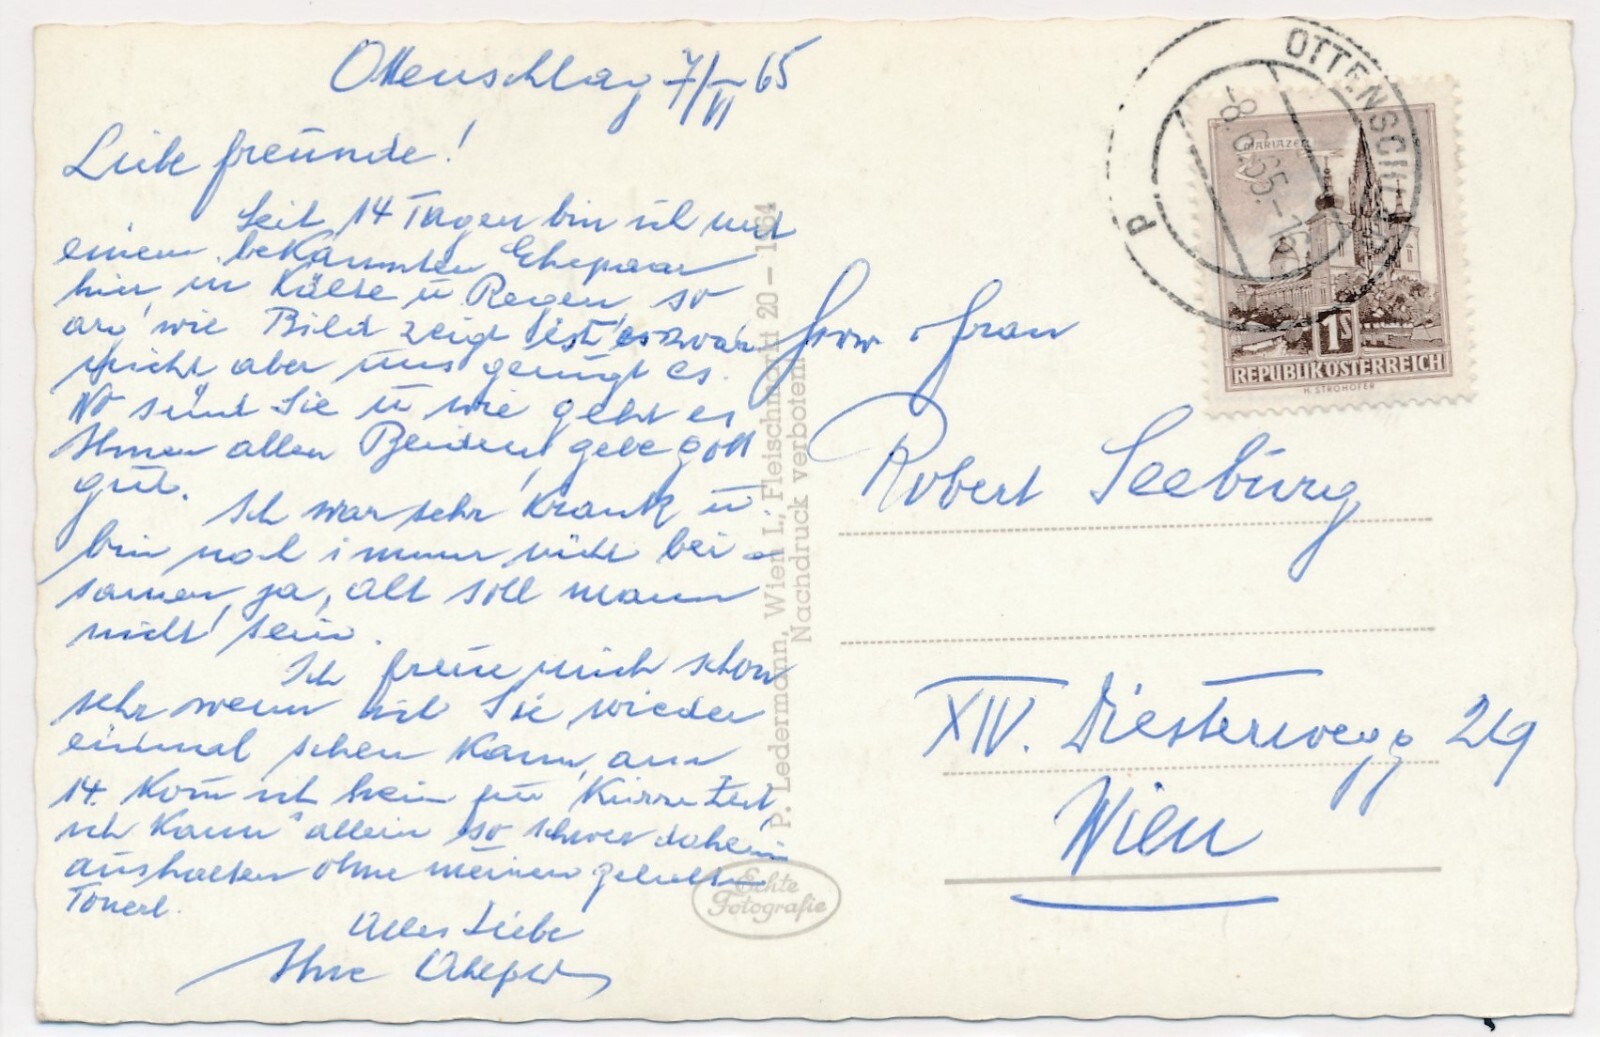 Ottenschlag 7/VI 65
Liebe Freunde!
Seit 14 Tagen bin ich mit
einem bekannten Ehepaar
hier, in Kälte u Regen, so
wie Bild zeigt ist es zwar
nicht aber uns genügt es.
Wo sind Sie u wie geht es
Ihnen allen Beiden, gebe Gott
gut.
Ich war sehr krank u.
bin noch immer nicht bei-
samen, ja, alt soll mann
nicht sein.
Ich freue mich schon
sehr wenn ich Sie wieder
einmal sehen kann, am
14. kom ich heim für kurze Zeit,
ich kann allein so schwer daheim
aushalten ohne meinen geliebten
Tonerl.
Alles Liebe
Ihre
P. Ledermann, Wien I., Fleischmarkt 20 – 1964
Nachdruck verboten
Echte
Fotografie
OTTENSCH
-8.6.65.-16
P
MARIAZELL
1S
REPUBLIK ÖSTERREICH
H. STROHOFER
Herrn Frau
Robert Seeburg
XIV. Diesterwegg 219
Wien